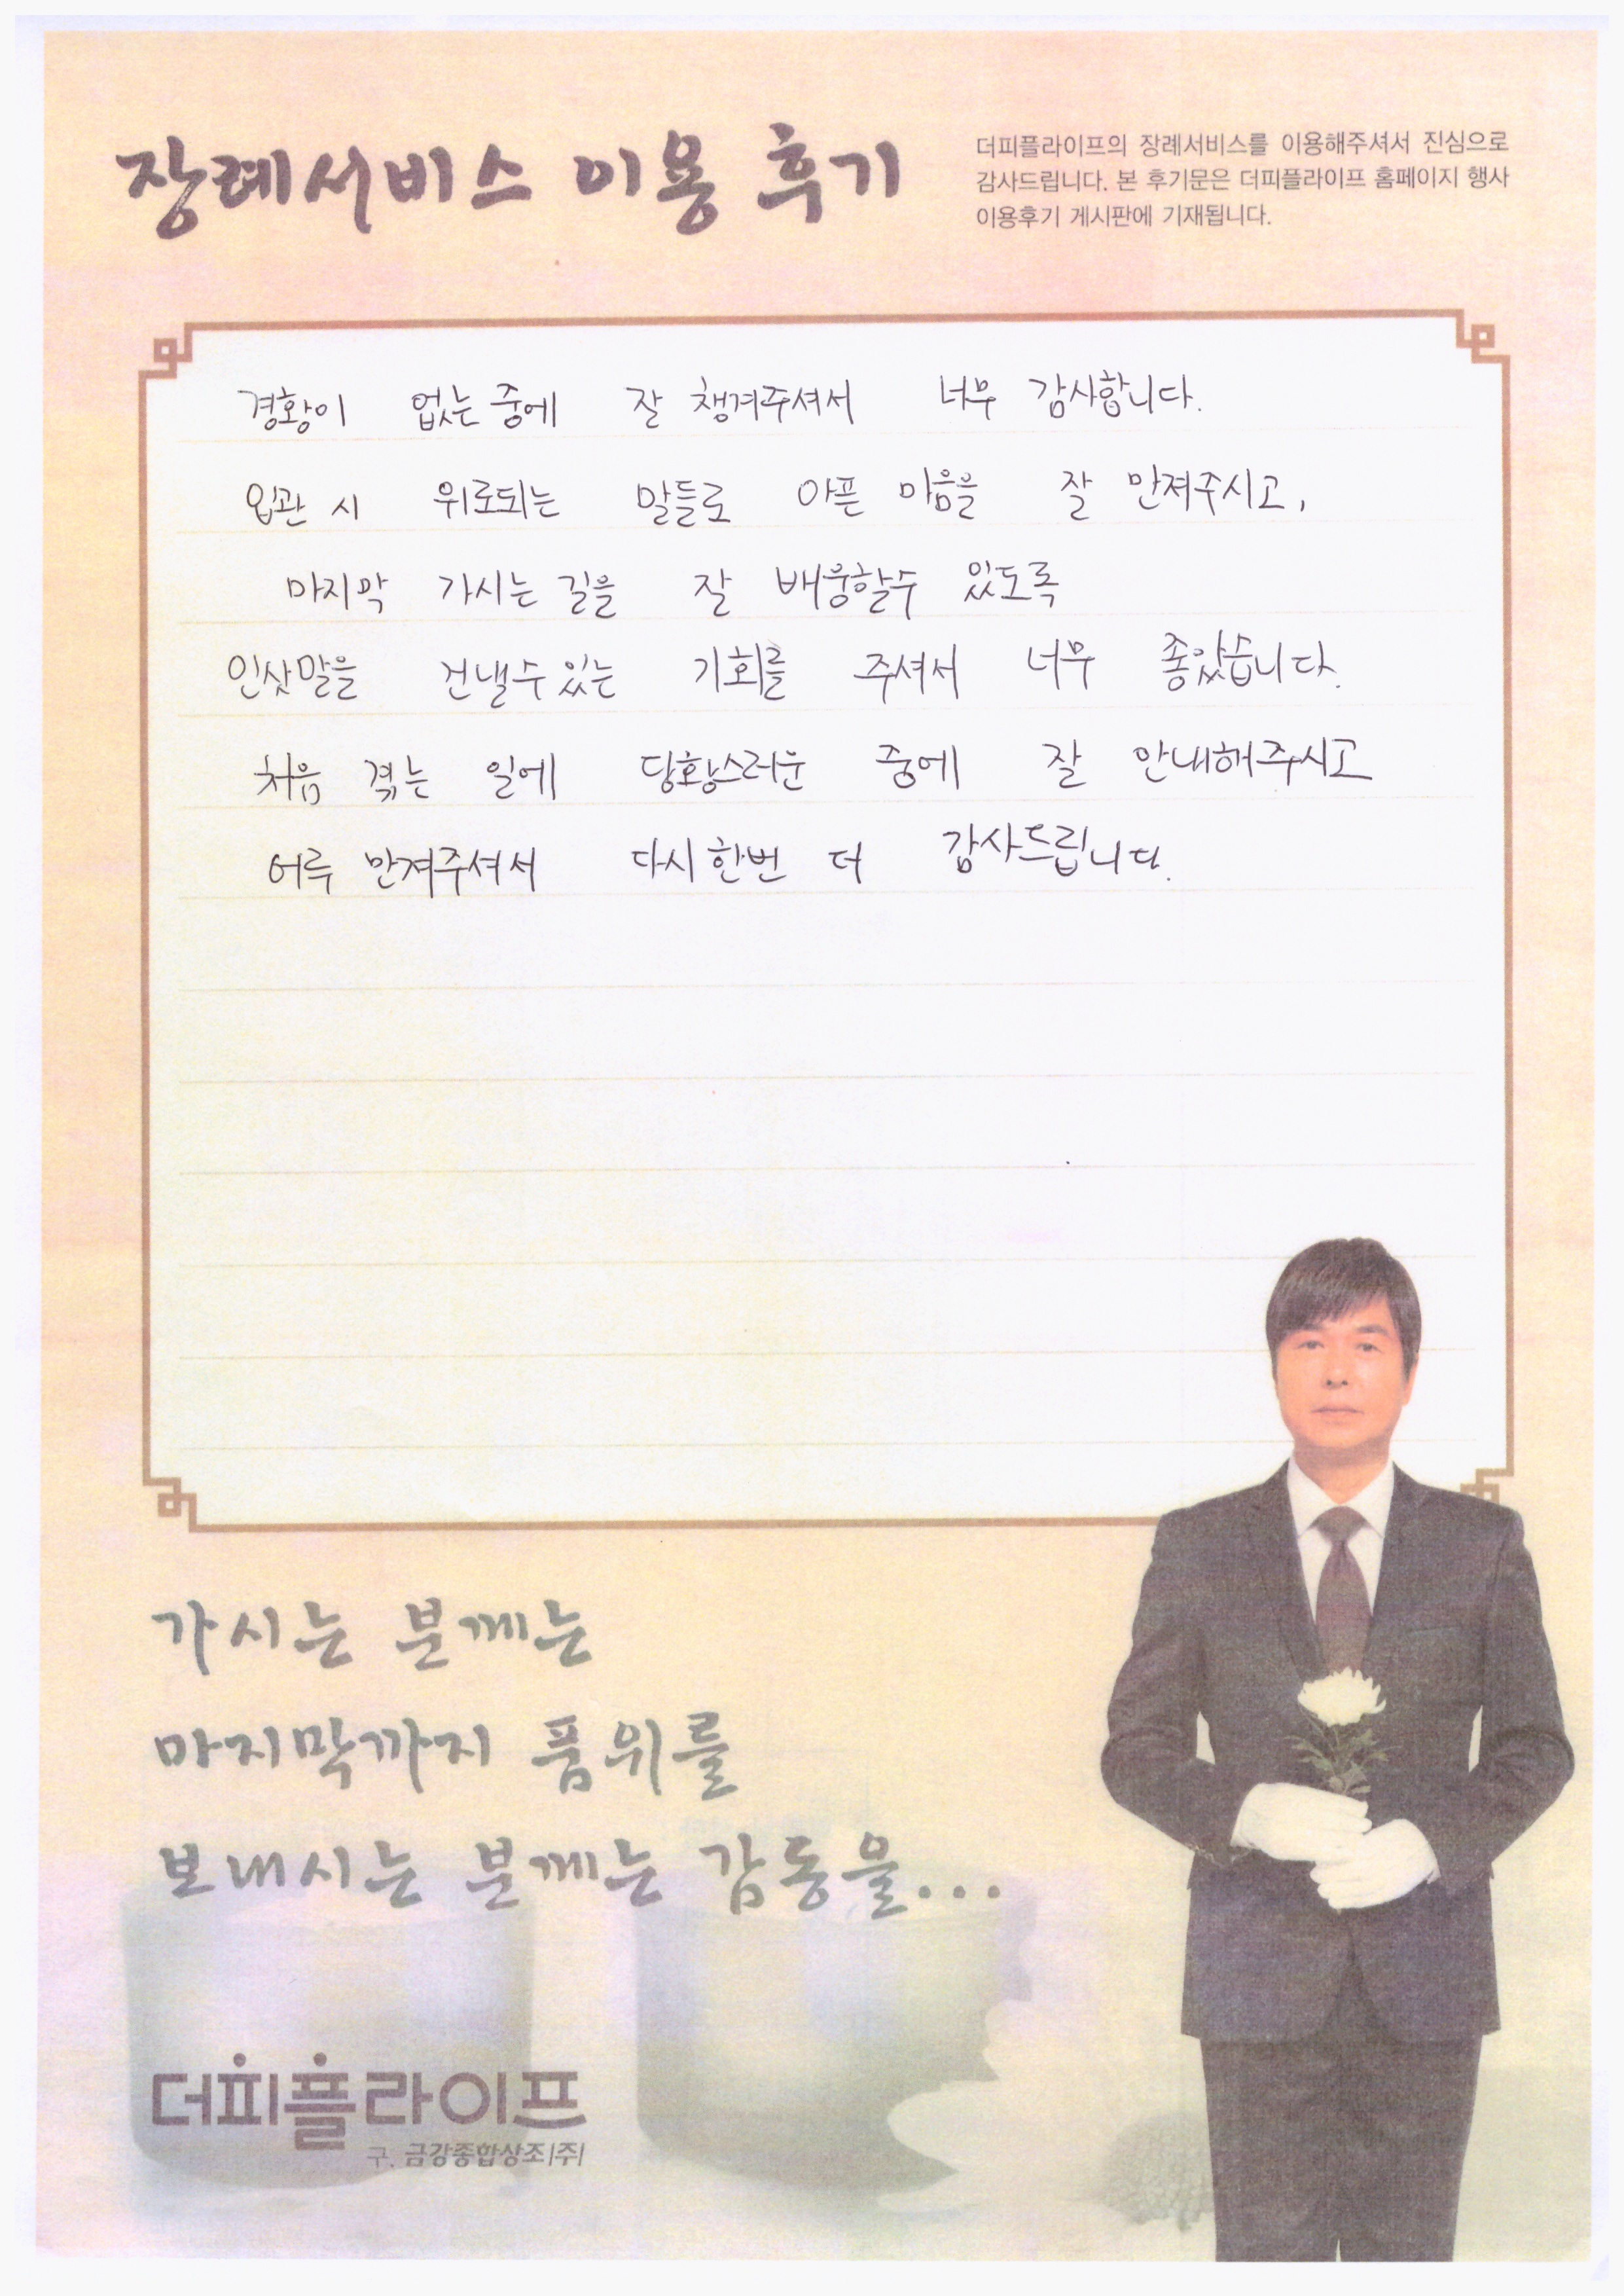 장례서비스 이용 후기
더피플라이프의 장례서비스를 이용해주셔서 진심으로
감사드립니다. 본 후기문은 더피플라이프 홈페이지 행사
이용후기 게시판에 기재됩니다.
경황이 없는 중에 잘 챙겨주셔서 너무 감사합니다.
입관 시 위로되는 말들로 아픈 마음을 잘 만져주시고,
마지막 가시는 길을 잘 배웅할수 있도록
인삿말을 건낼수 있는 기회를 주셔서 너무 좋았습니다.
처음 겪는 일에 당황스러운 중에 잘 안내해주시고
어루 만져주셔서 다시 한번 더 감사드립니다.
가시는 분께는
마지막까지 품위를
보내시는 분께는 감동을...
더피플라이프
구. 금강종합상조(주)